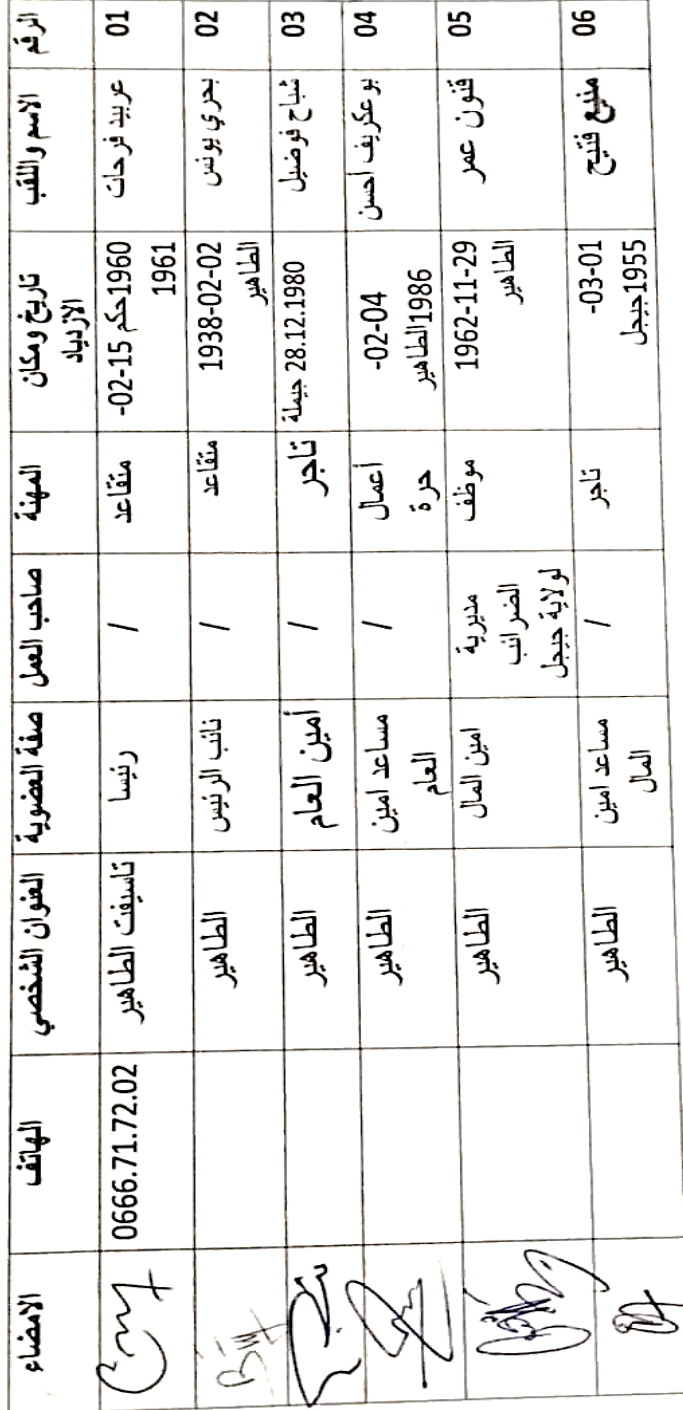 الرقم الاسم واللقب تاريخ ومكان الازدياد المهنة صاحب العمل صفة العضوية العنوان الشخصي الهاتف الامضاء
01 عربيد فرحات 1960حكم 15-02- 1961 متقاعد / رئيسا تاسيفت الطاهير 0666.71.72.02
02 بحري يونس 1938-02-02 الطاهير متقاعد / نائب الرئيس الطاهير
03 شباح فوضيل 28.12.1980 جيملة تاجر / أمين العام الطاهير
04 بوعكريف احسن 02-04- 1986الطاهير أعمال حرة / مساعد امين العام الطاهير
05 قنون عمر 1962-11-29 الطاهير موظف مديرية الضرائب لولاية جيجل امين المال الطاهير
06 منيع فتيح 03-01- 1955جيجل تاجر / مساعد امين المال الطاهير